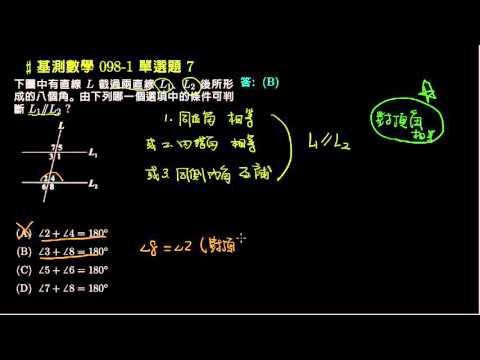 # 基測數學 098-1 單選題 7
下圖中有直線 L 截過兩直線 L₁、L₂ 後所形
成的八個角。由下列哪一個選項中的條件可判
斷 L₁//L₂ ?
答: (B)
1. 同位角 相等
或 2. 內錯角 相等
或 3. 同側內角 互補
L₁ // L₂
對頂角
相等
L
7 5
3 1
L₁
2 4
6 8
L₂
(A) ∠2 + ∠4 = 180°
(B) ∠3 + ∠8 = 180°
(C) ∠5 + ∠6 = 180°
(D) ∠7 + ∠8 = 180°
∠8 = ∠2 (對頂